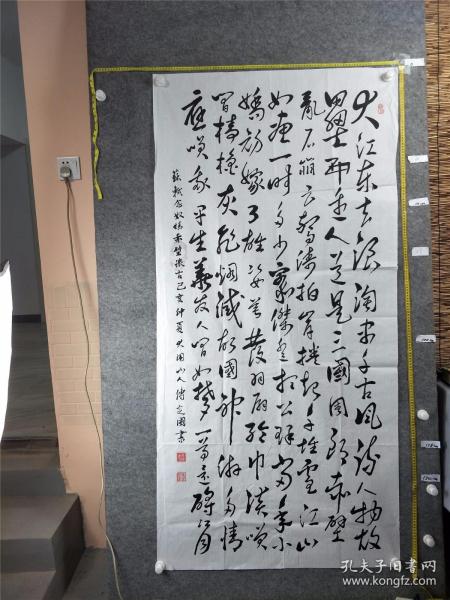 大江东去浪淘尽千古风流人物故
壘西边人道是三國周郎赤壁
乱石崩云惊涛拍岸捲起千堆雪江山
如画一时多少豪傑遥想公瑾当年小
嬌初嫁了雄姿英發羽扇纶巾談笑
间樯橹灰飛烟滅故國神游多情
应笑我早生華发人间如梦一尊还酹江月
蘇軾念奴嬌赤壁懷古己亥仲夏大周山人傅定國書
孔夫子旧书网
www.kongfz.com